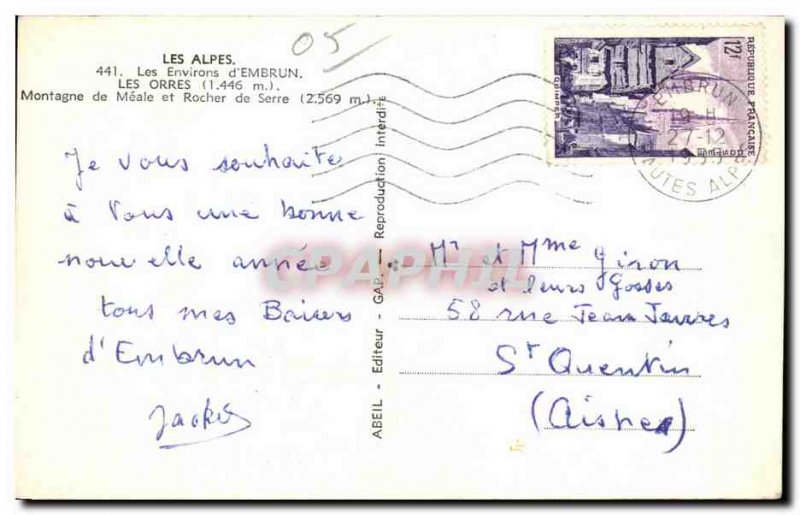 05
LES ALPES.
441. Les Environs d'EMBRUN.
LES ORRES (1.446 m.).
Montagne de Méale et Rocher de Serre (2.569 m.)
Je vous souhaite
à Vous une bonne
nouvelle année
tous mes Baisers
d'Embrun
ABEIL - Editeur - GAP. - Reproduction interdite
12F
RÉPUBLIQUE FRANÇAISE
QUIMPER
EMBRUN
19 H
27-12
HAUTES ALPES
CPAPHIL
Mr et Mme Giron
et leurs Gosses
58 rue Jean Jaures
St Quentin
(Aisne)